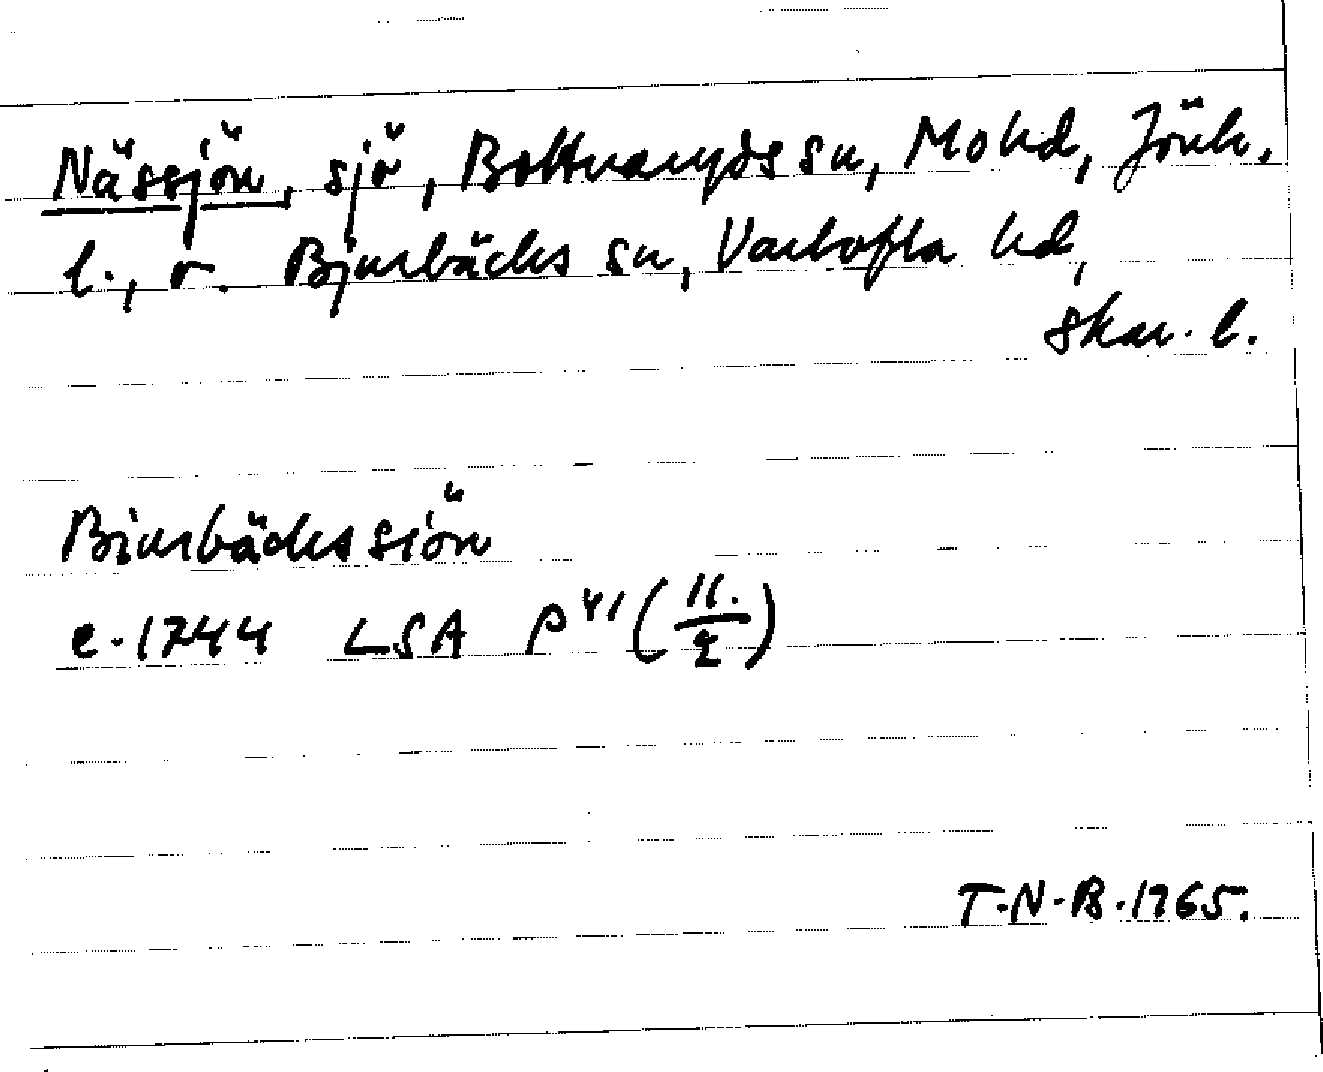 Nässjön, sjö, Bottnaryds sn, Mo hd, Jönk.
l., o. Bjurbäcks sn, Vartofta hd,
Skar. l.
Biurbäckssiön
e. 1744 LSA P41 (11./2)
T.N.B. 1965.